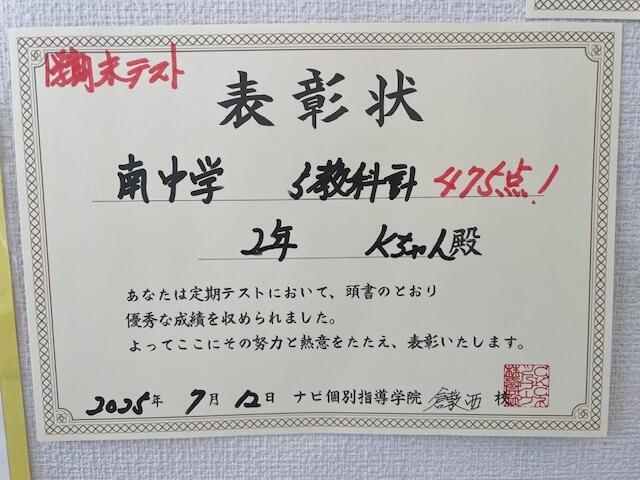 期末テスト
表彰状
南中学 5教科計 475点!
2年 Kちゃん殿
あなたは定期テストにおいて、頭書のとおり
優秀な成績を収められました。
よってここにその努力と熱意をたたえ、表彰いたします。
2025年 7月 12日 ナビ個別指導学院 西 校